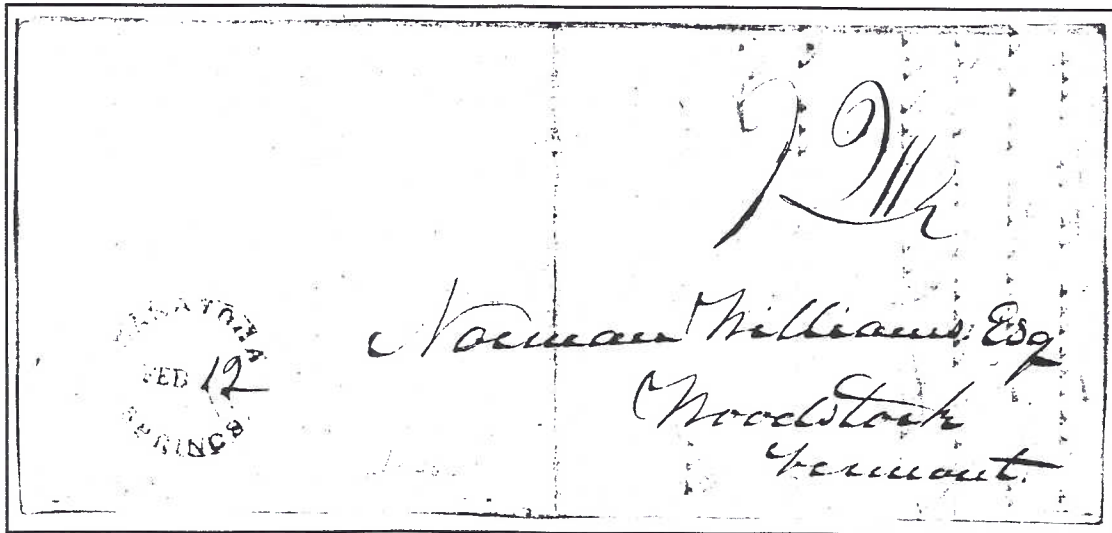 SARATOGA
FEB 12
SPRINGS
Norman Williams Esq
Woodstock
Vermont.